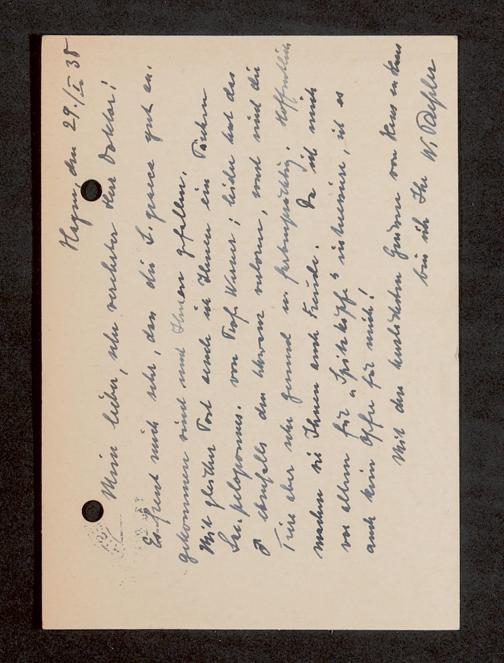 Hagen, den 29./I. 38
Mein lieber, sehr verehrter Herr Doktor!
Es freut mich sehr, dass die L. graeca gut an-
gekommen sind und Ihnen gefallen.
Mit gleicher Post sende ich Ihnen ein Pärchen
Lac. peloponnes. von Prof. Werner; leider hat das
♂ ebenfalls den Schwanz verloren, sonst sind die
Tiere aber sehr gesund u. farbenprächtig. Hoffentlich
machen sie Ihnen auch Freude. Da ich mich
vor allem für "Spitzköpfe" interessiere, ist es
auch kein Opfer für mich!
Mit den herzlichsten Grüssen von Haus zu Haus
bin ich Ihr W.